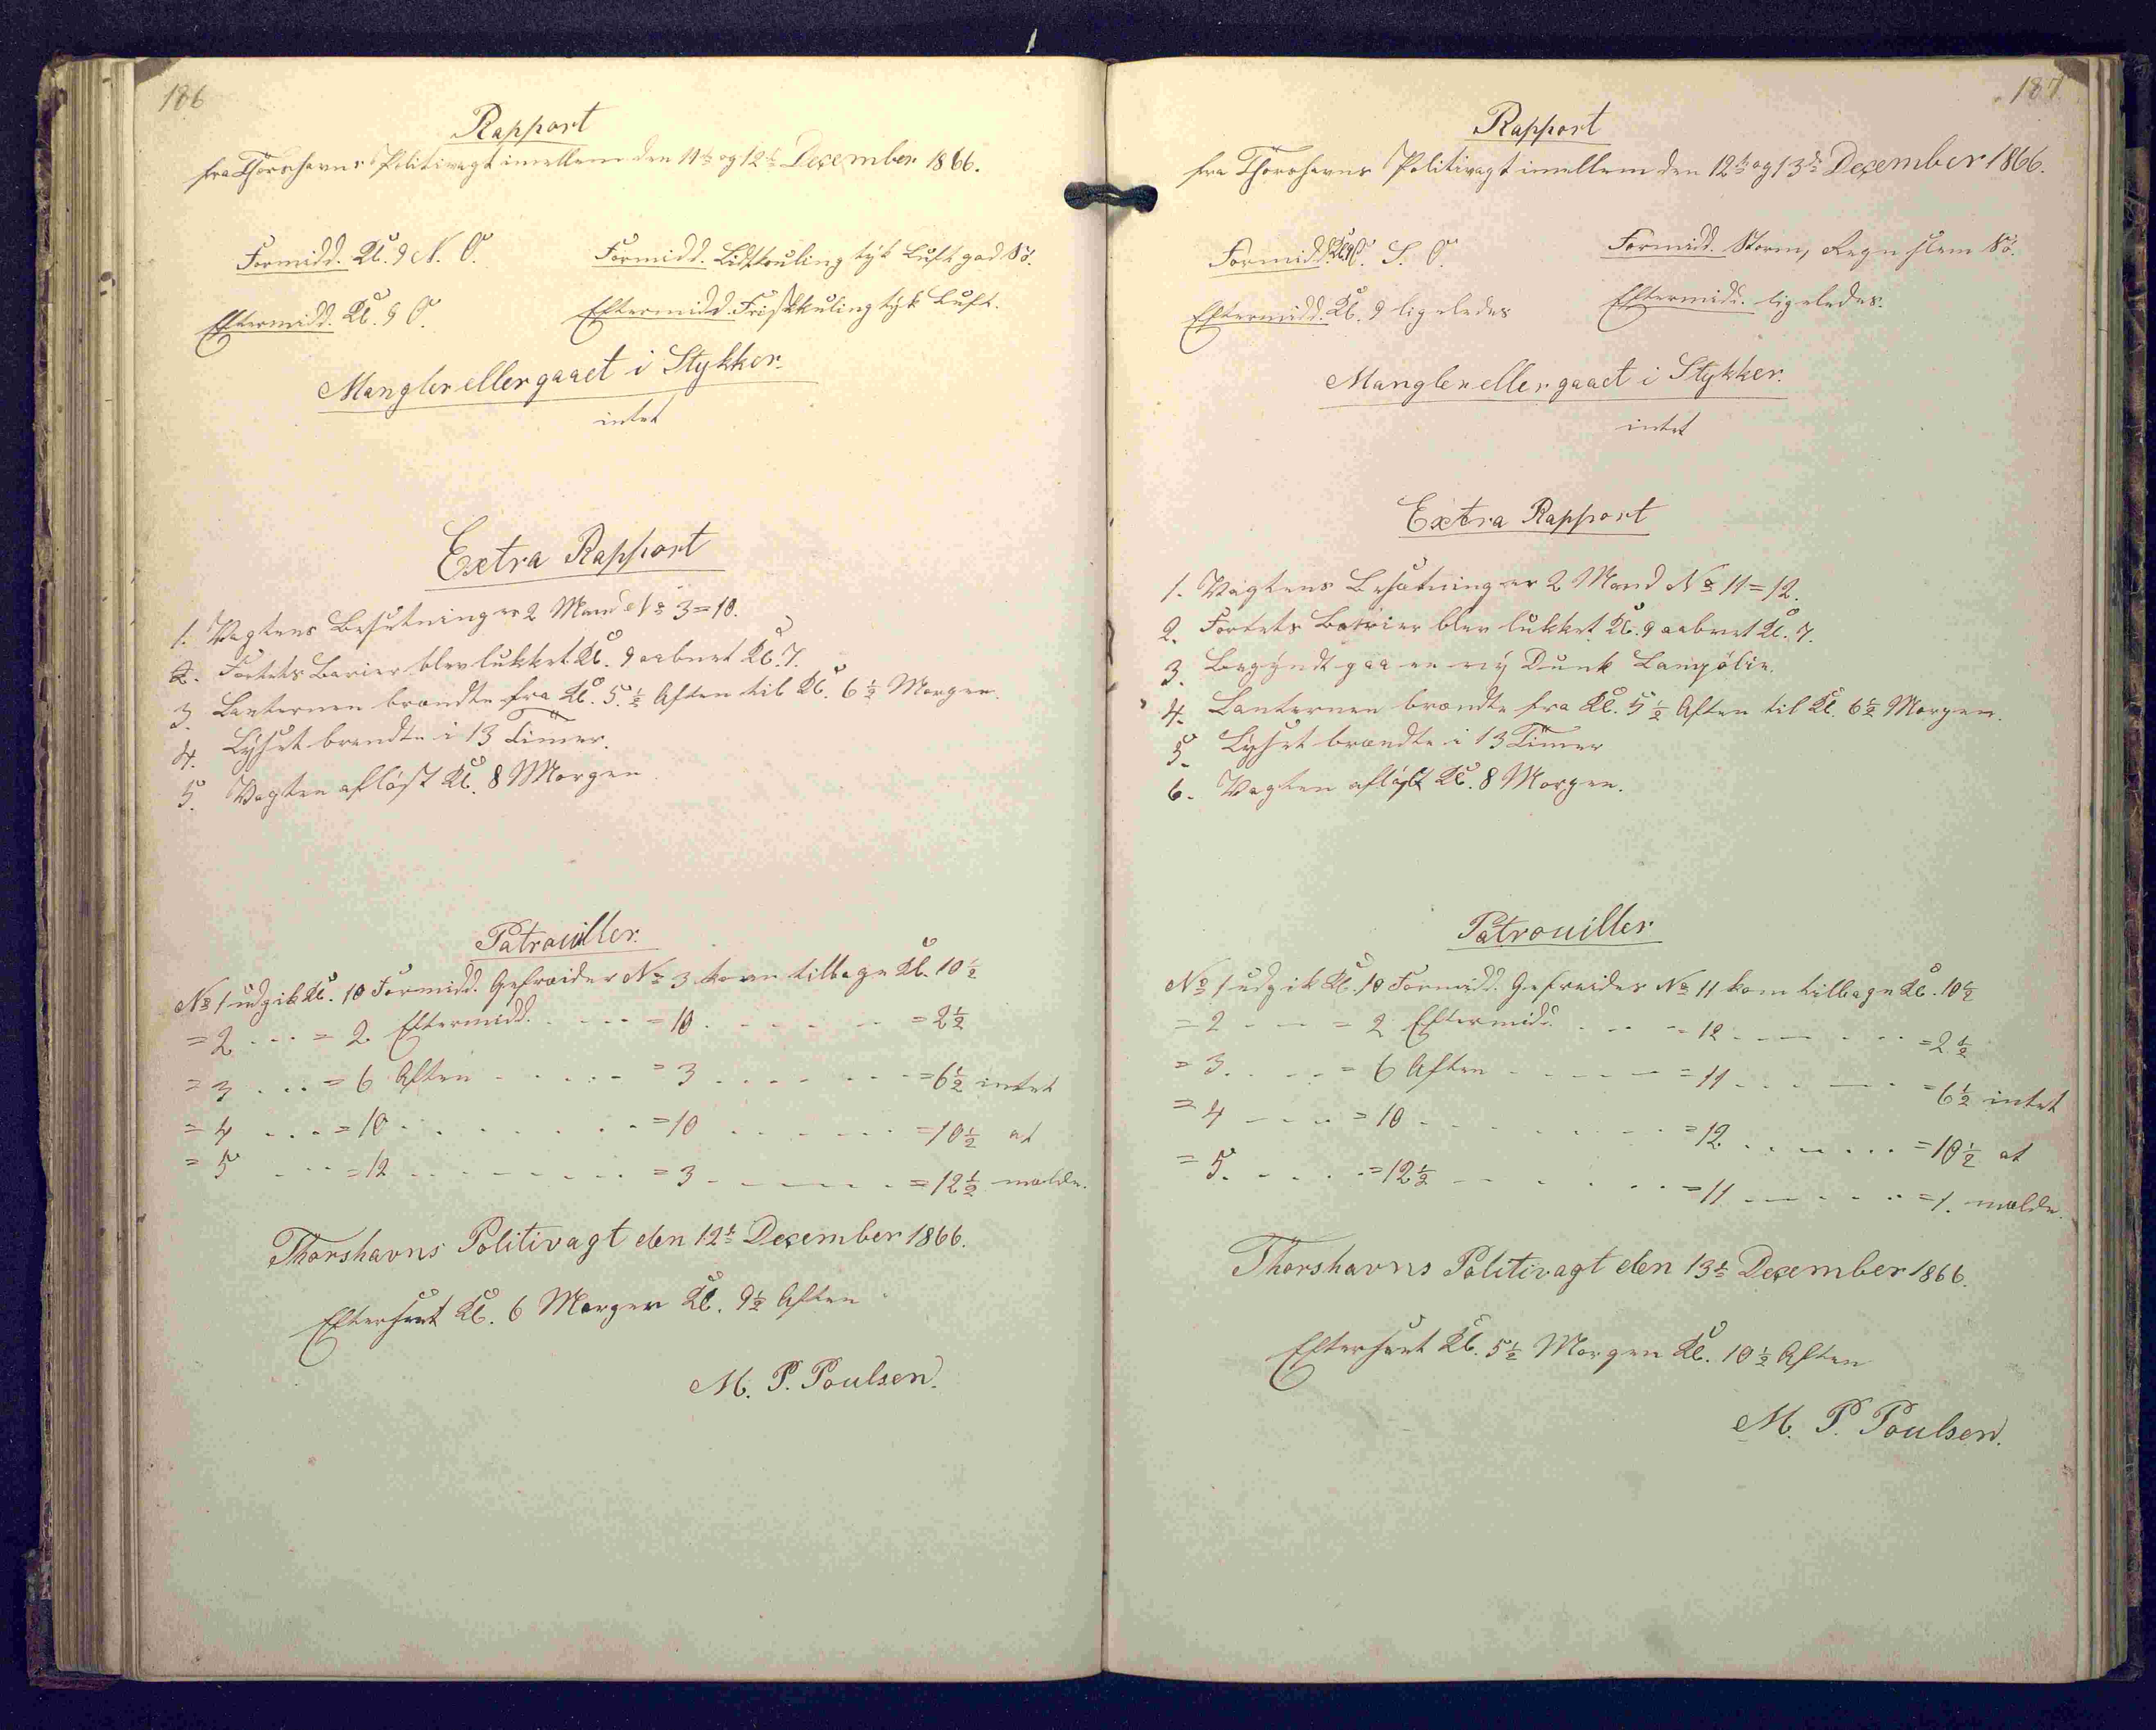 186
Rapport
fra Thorshavns Politivagt imellem den 11te og 12te December 1866.
Formidd. Kl. 9 N. O. Formidd. Lidtkuling tyk Luft god Sö.
Eftermidd. Kl. 9 O. Eftermidd. Friskkuling tyk Luft.
Mangler eller gaaet i Stykker.
intet
Extra Rapport
1. Vagtens Besætning er 2 Mand No 3 = 10.
2. Fortets Barier blev lukket Kl. 9 aabnet Kl. 7.
3. Lanternen brændte fra Kl. 5 1/2 Aften til Kl. 6 1/2 Morgen.
4. Lyset brændte i 13 Timer.
5. Vagten aflöst Kl. 8 Morgen
Patrouiller.
No 1 udgik Kl. 10 Formidd. Gefreider No 3 kom tilbage Kl. 10 1/2
= 2 . . . = 2 Eftermidd. . . . . = 10 . . . . . . = 2 1/2
= 3 . . . = 6 Aften . . . . . = 3 . . . . . . = 6 1/2 intet
= 4 . . . = 10 . . . . . . . = 10 . . . . . . = 10 1/2 at
= 5 . . . = 12 . . . . . . . = 3 . . . . . . = 12 1/2 melde.
Thorshavns Politivagt den 12te December 1866.
Efterseet Kl. 6 Morgen Kl. 9 1/2 Aften
M. P. Poulsen.
187
Rapport
fra Thorshavns Politivagt imellem den 12te og 13de December 1866.
Formidd. Kl. 9 S. O. Formidd. Storm, Regn slem Sö.
Eftermidd. Kl. 9 ligeledes Eftermidd. ligeledes.
Mangler eller gaaet i Stykker.
intet
Extra Rapport
1. Vagtens Besætning er 2 Mand No 11 = 12.
2. Fortets Barier blev lukket Kl. 9 aabnet Kl. 7.
3. Begyndt paa en ny Dunk Lampölie.
4. Lanternen brændte fra Kl. 5 1/2 Aften til Kl. 6 1/2 Morgen.
5. Lyset brændte i 13 Timer
6. Vagten aflöst Kl. 8 Morgen.
Patrouiller
No 1 udgik Kl. 10 Formidd. Gefreider No 11 kom tilbage Kl. 10 1/2
= 2 . . . = 2 Eftermidd. . . . . = 12 . . . . . . = 2 1/2
= 3 . . . = 6 Aften . . . . . = 11 . . . . . . = 6 1/2 intet
= 4 . . . = 10 . . . . . . . = 12 . . . . . . = 10 1/2 at
= 5 . . . = 12 1/2 . . . . . . = 11 . . . . . . = 1. melde.
Thorshavns Politivagt den 13de December 1866.
Efterseet Kl. 5 1/2 Morgen Kl. 10 1/2 Aften
M. P. Poulsen.